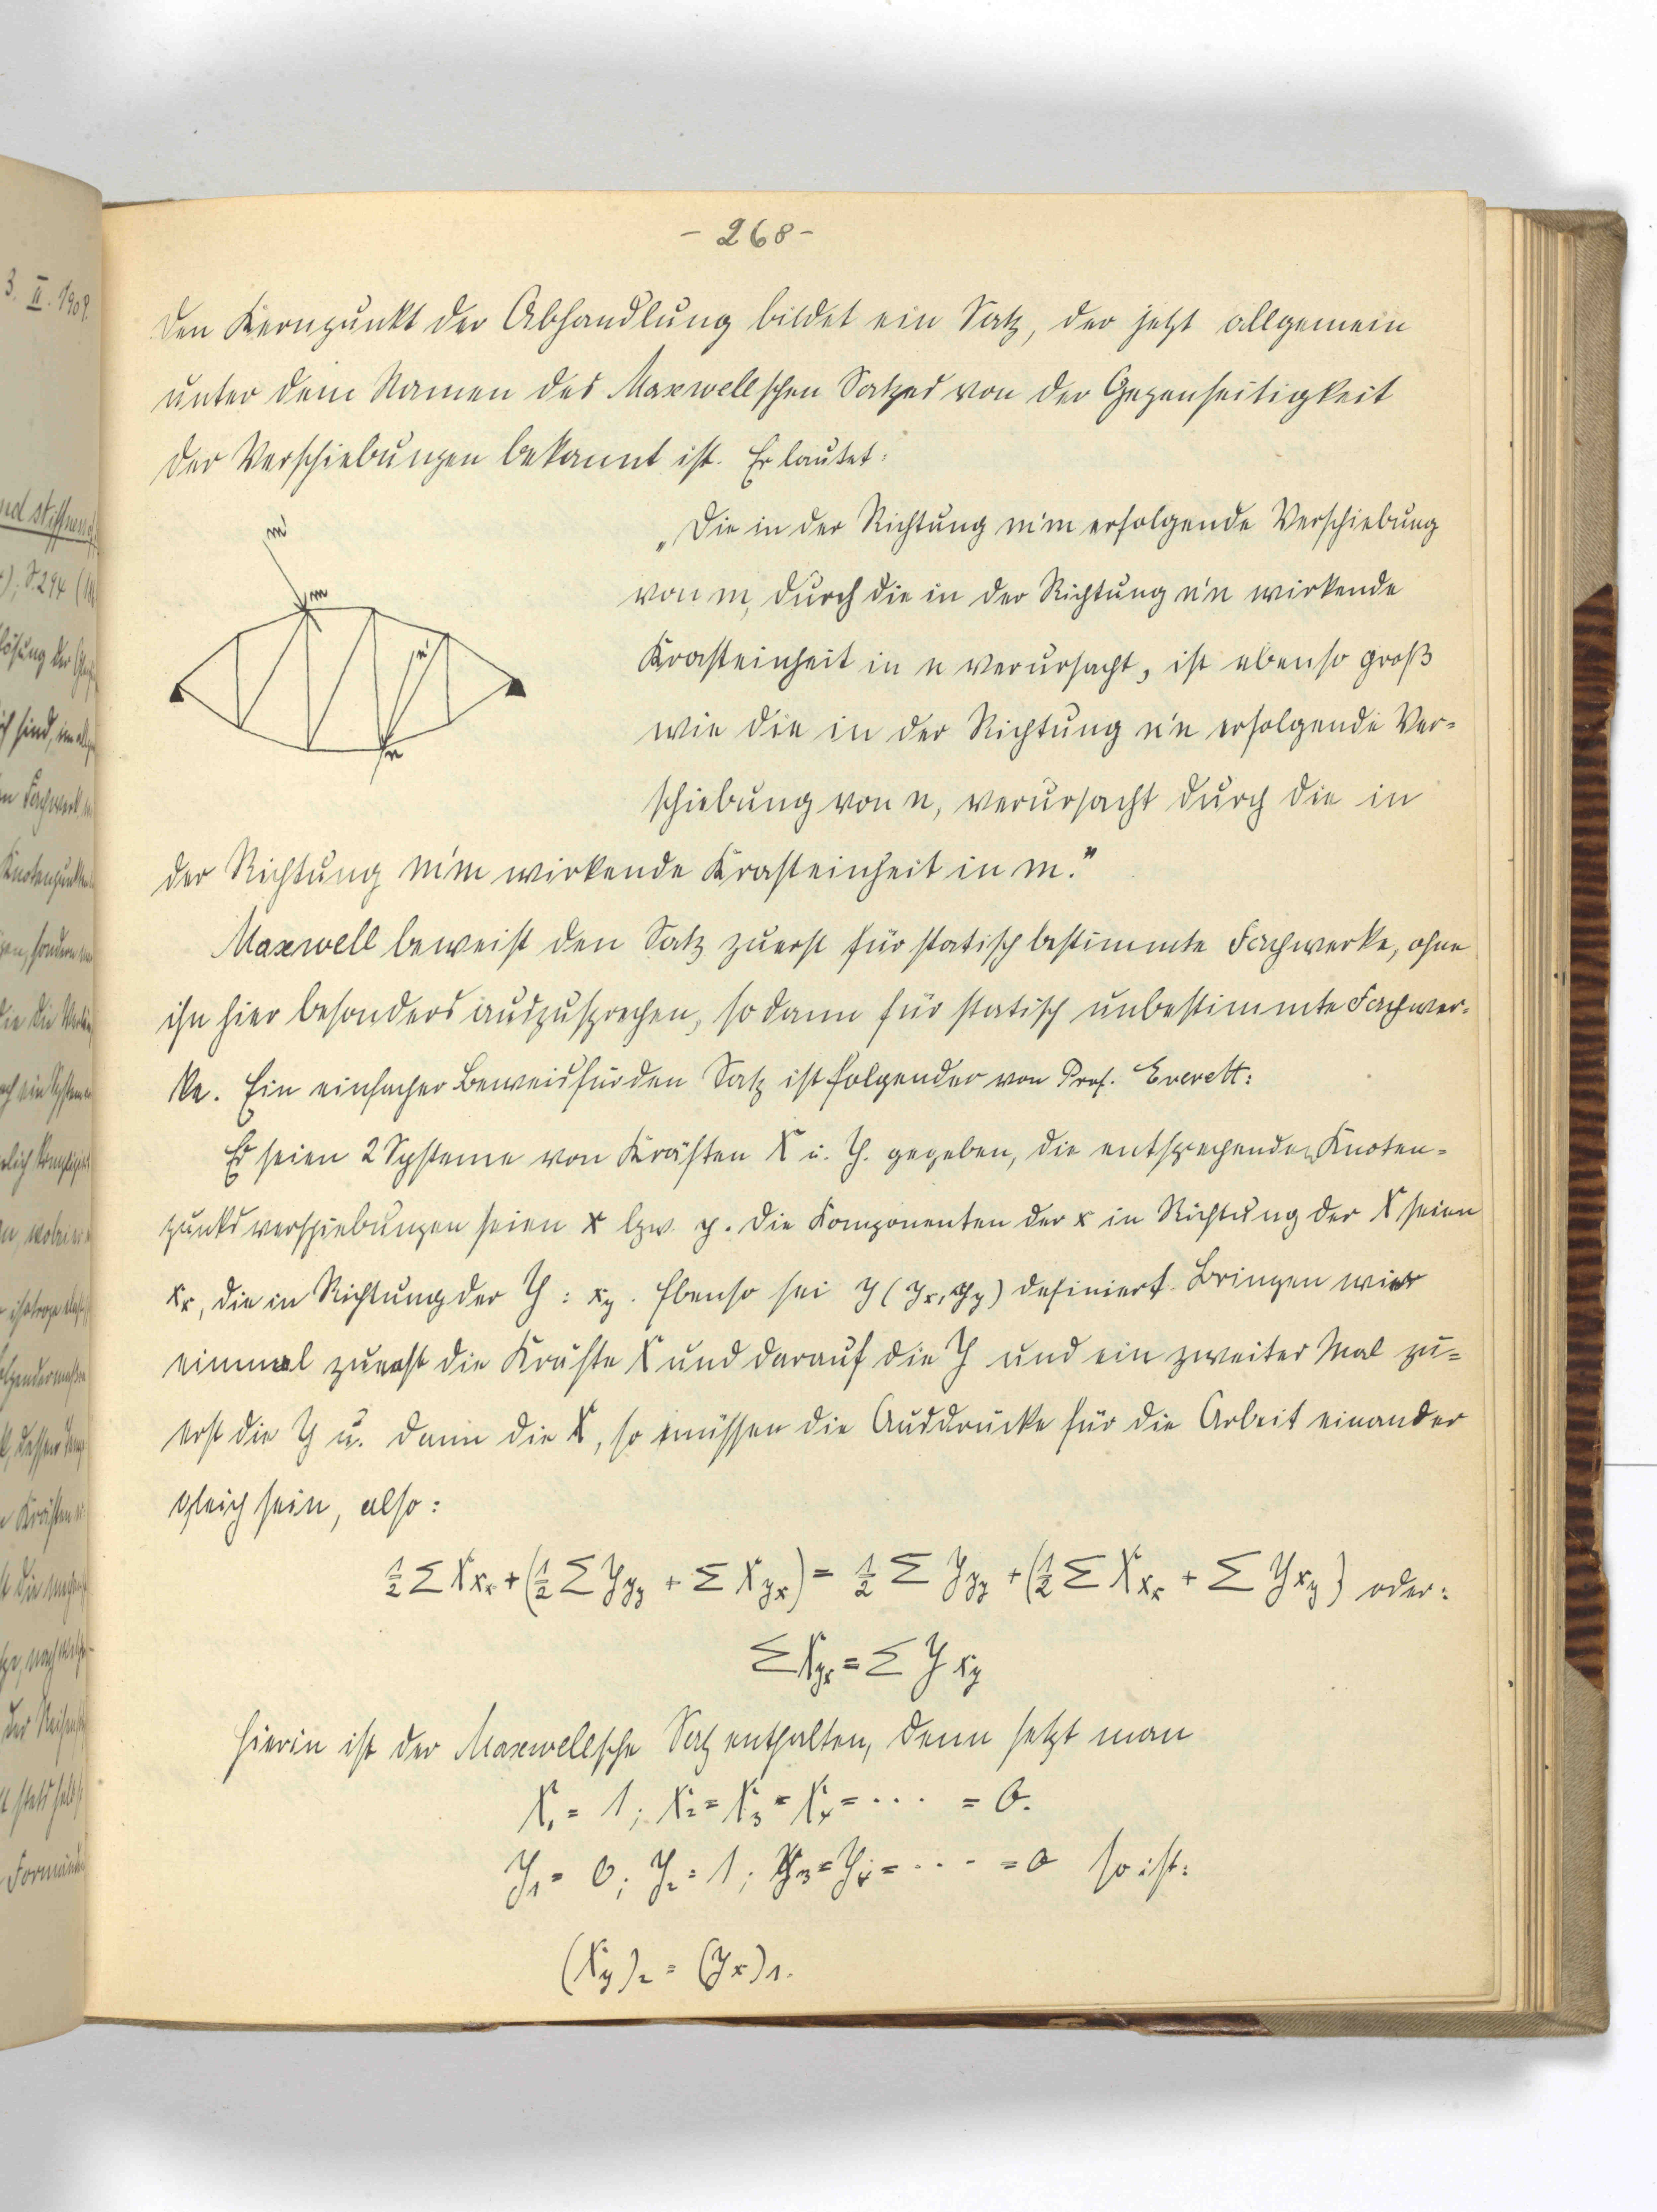 3. II. 1909.
- 268 -
Den Kernpunkt der Abhandlung bildet ein Satz, der jetzt allgemein
unter dem Namen des Maxwellschen Satzes von der Gegenseitigkeit
der Verschiebungen bekannt ist. Er lautet:
m'
m
n'
n
„Die in der Richtung m'm erfolgende Verschiebung
von m, durch die in der Richtung n'n wirkende
Krafteinheit in n verursacht, ist ebenso groß
wie die in der Richtung n'n erfolgende Ver-
schiebung von n, verursacht durch die in
der Richtung m'm wirkende Krafteinheit in m."
Maxwell beweist den Satz zuerst für statisch bestimmte Fachwerke, ohne
ihn hier besonders auszusprechen, sodann für statisch unbestimmte Fachwer-
ke. Ein einfacher Beweis für den Satz ist folgender von Prof. Everett:
Es seien 2 Systeme von Kräften X u. Y. gegeben, die entsprechenden Knoten-
punktsverschiebungen seien x bzw. y. Die Komponenten der x in Richtung der X seien
x_x, die in Richtung der Y : x_y. Ebenso sei y (y_x, y_y) definiert. Bringen wir
einmal zuerst die Kräfte X und darauf die Y und ein zweiter Mal zu-
erst die Y u. dann die X, so müssen die Ausdrücke für die Arbeit einander
gleich sein, also:
½ Σ X x_x + (½ Σ Y y_y + Σ X y_x) = ½ Σ Y y_y + (½ Σ X x_x + Σ Y x_y) oder:
Σ X y_x = Σ Y x_y
Hierin ist der Maxwellsche Satz enthalten, denn setzt man
X_1 = 1; X_2 = X_3 = X_4 = ··· = 0.
Y_1 = 0; Y_2 = 1; Y_3 = Y_4 = ··· = 0 so ist:
(x_y)_2 = (y_x)_1.